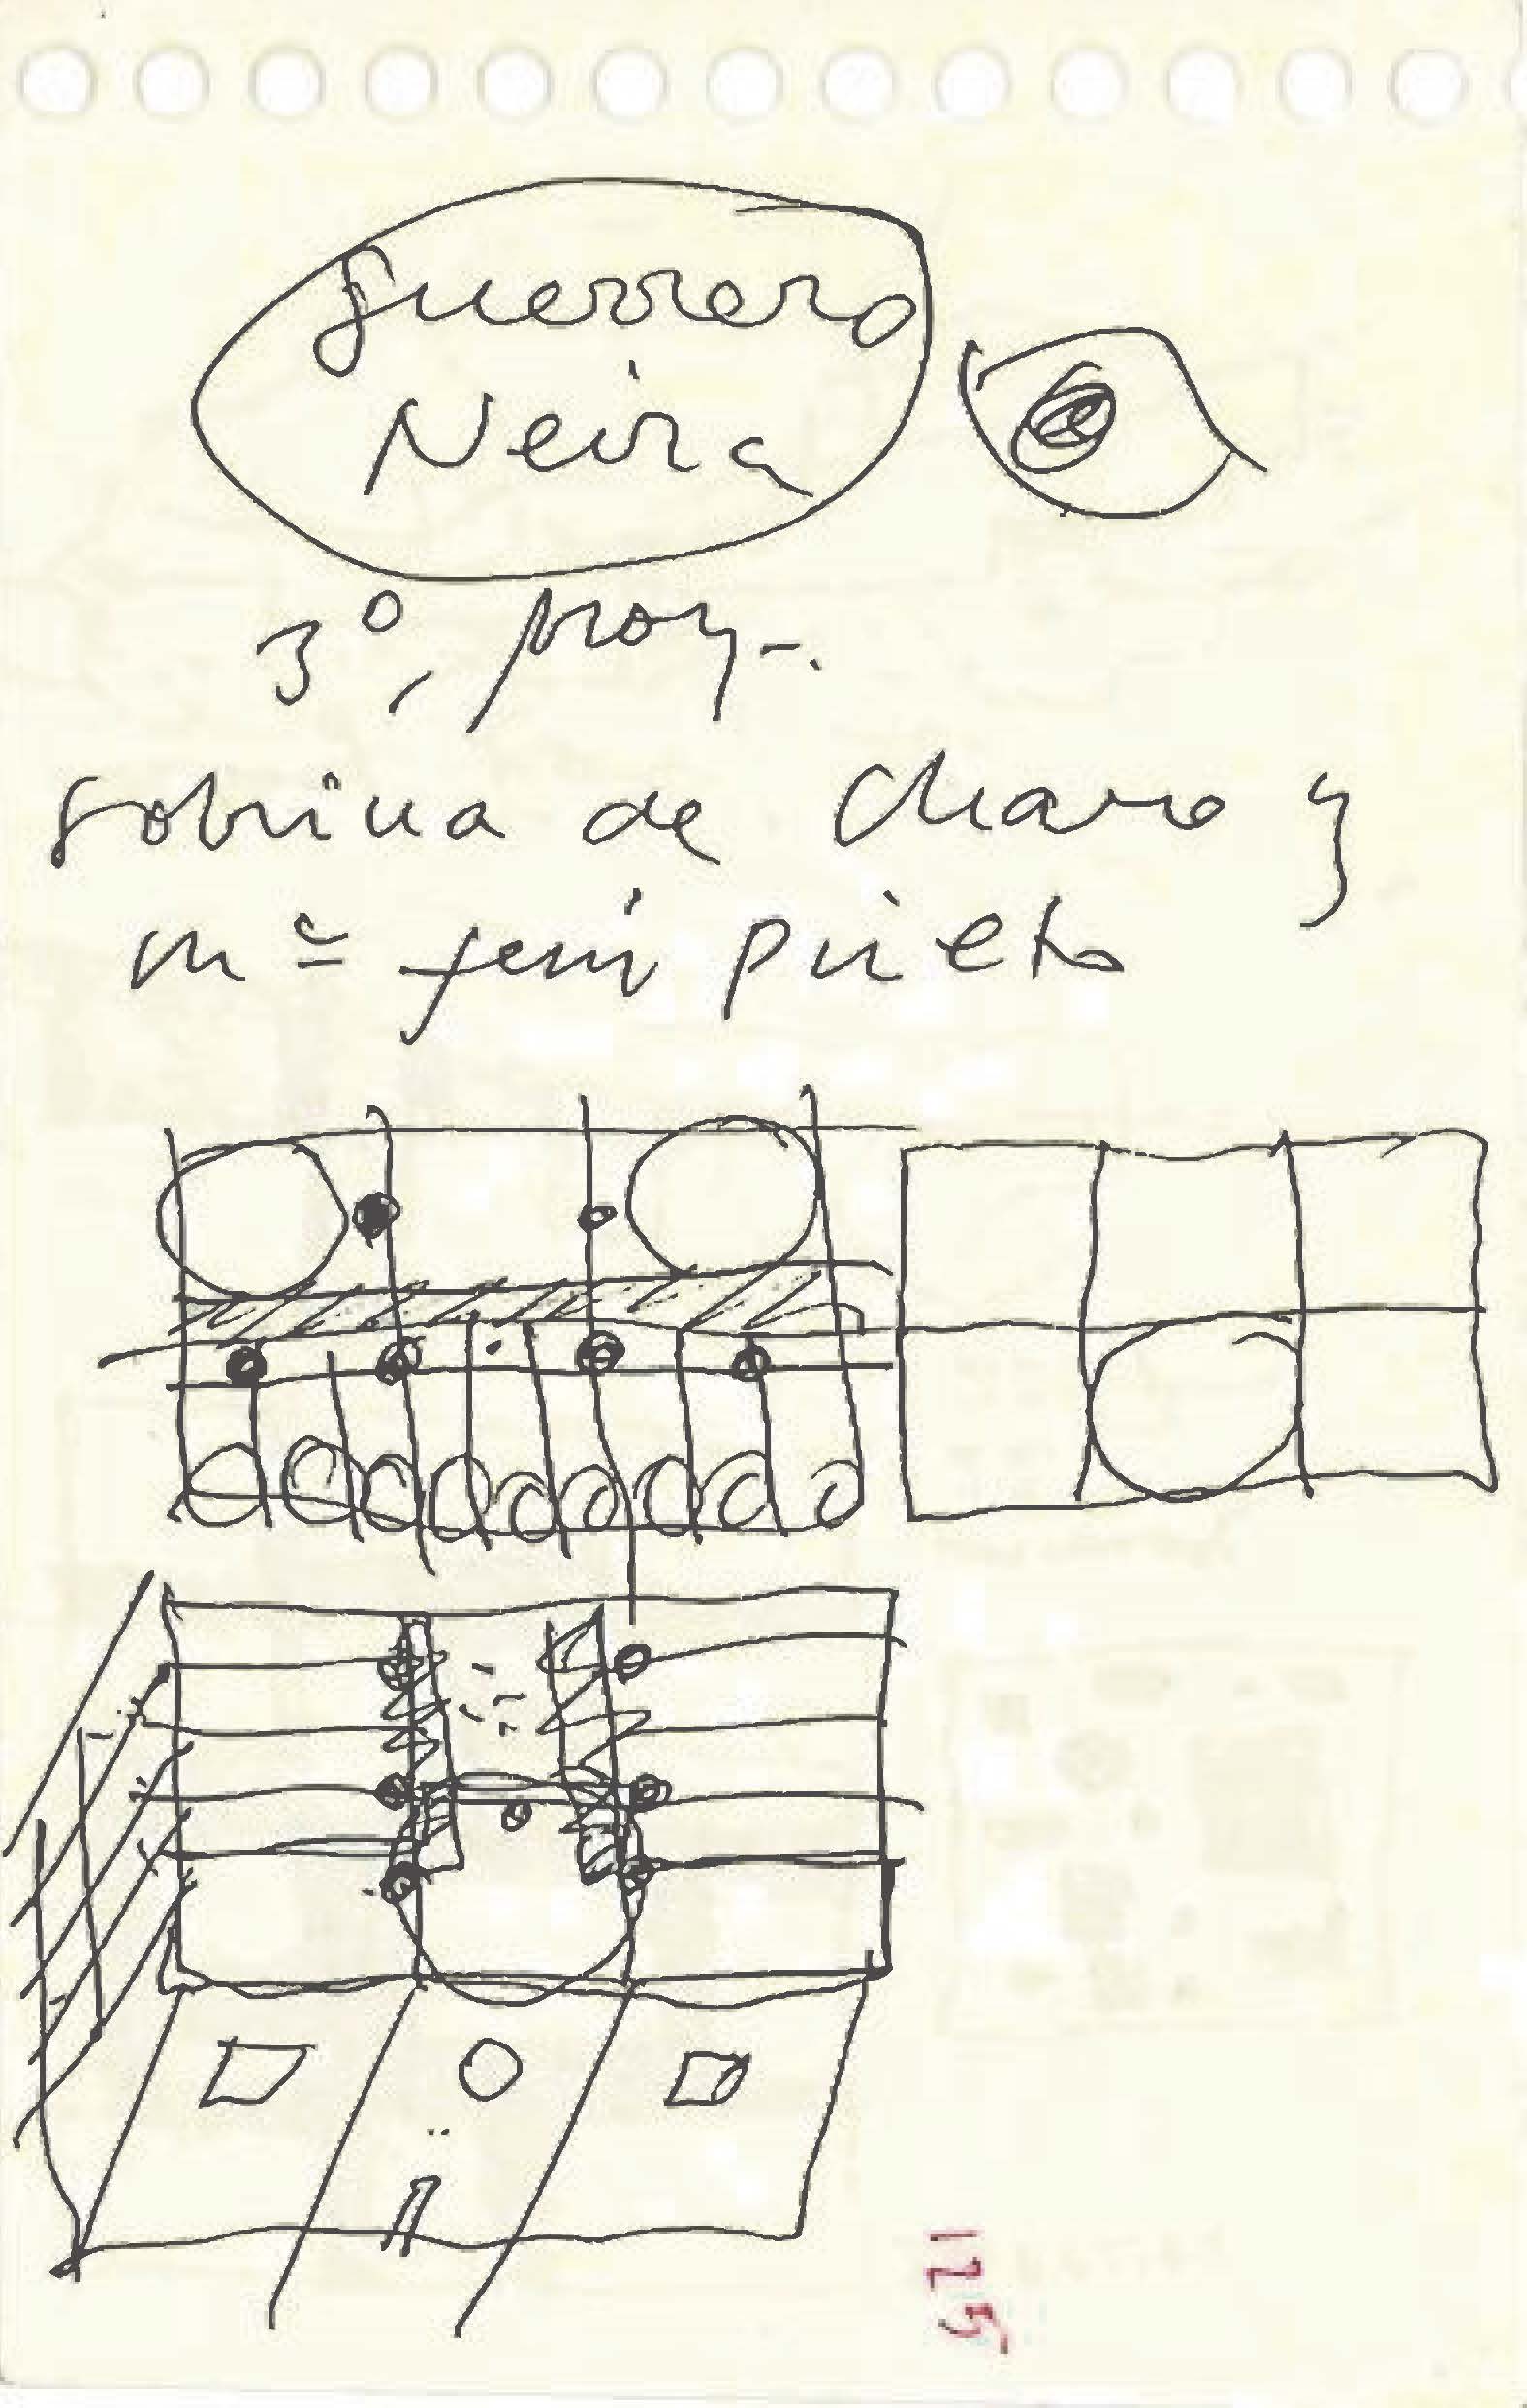 Guerrero
Neira
3º, proy-.
sobrina de Charo y
Mª Feni Prieto
125